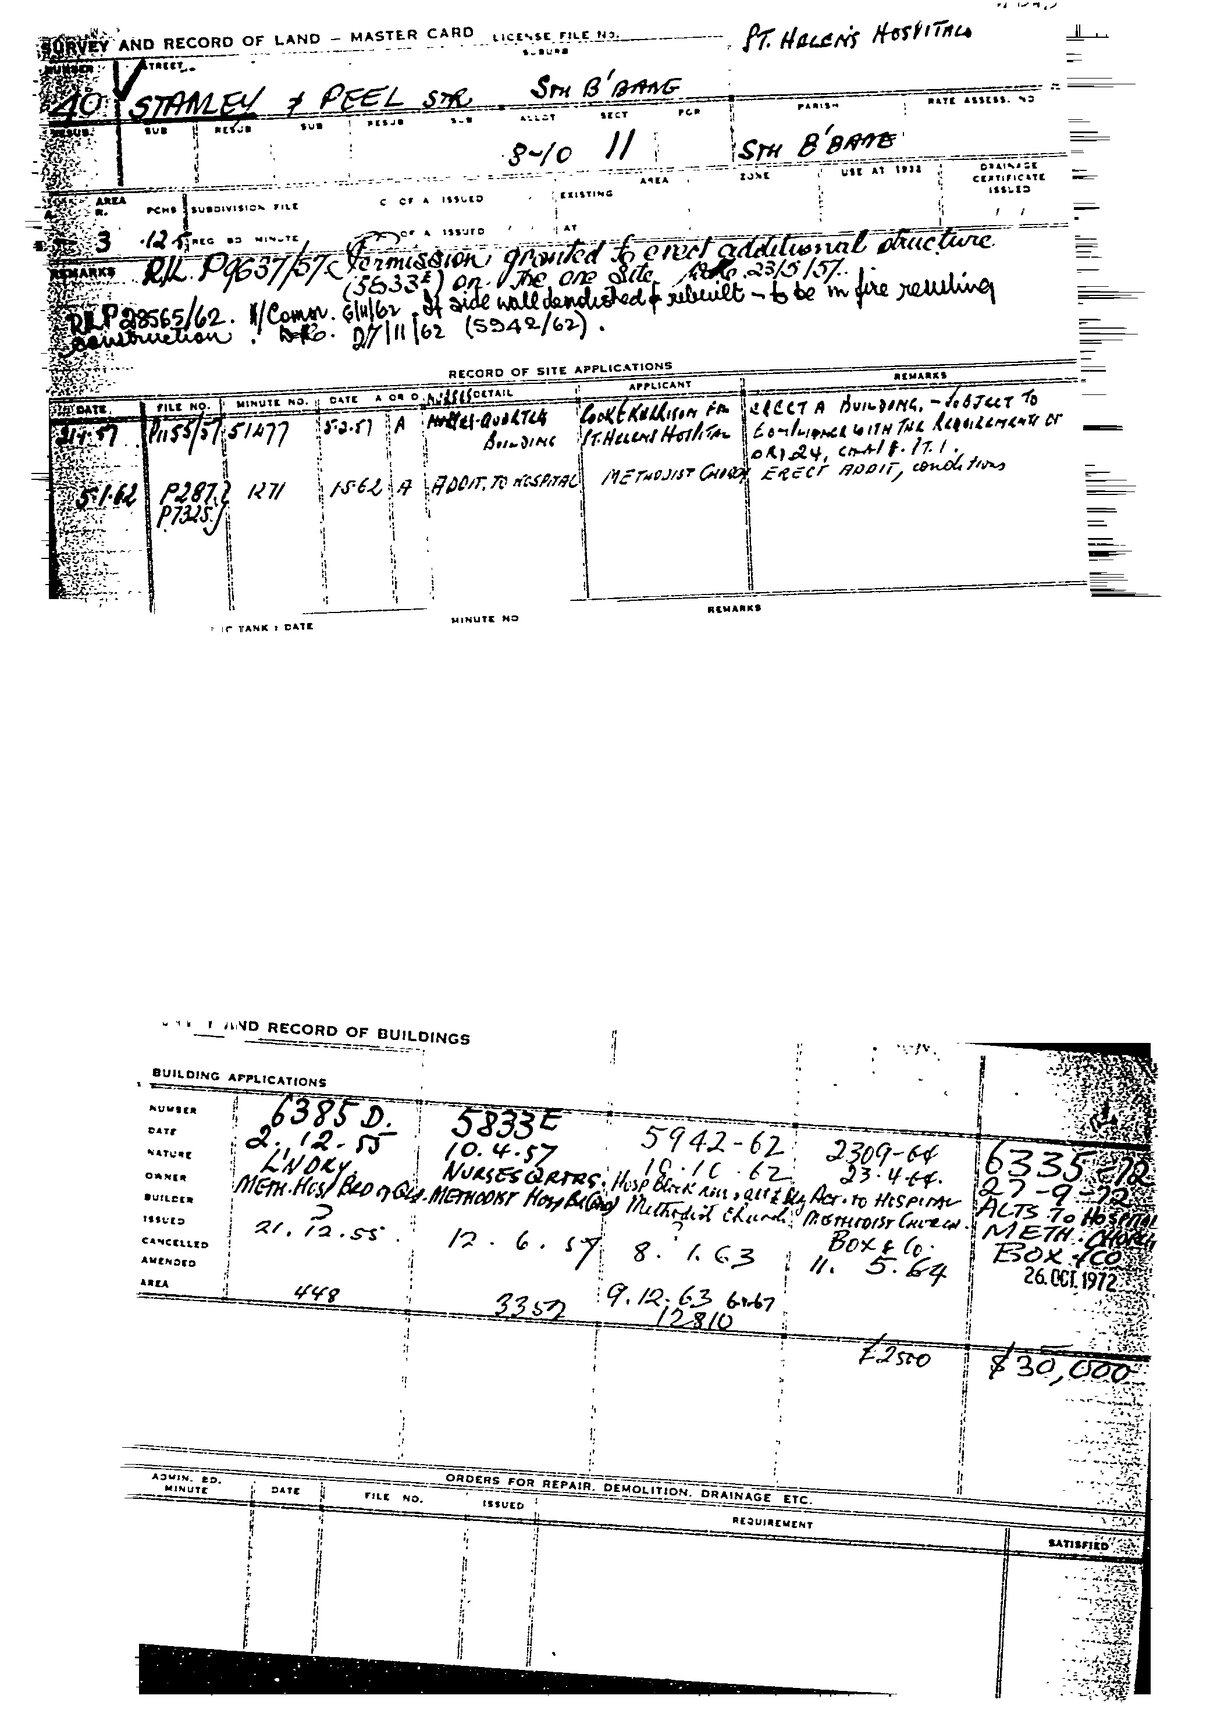 SURVEY AND RECORD OF LAND – MASTER CARD LICENSE FILE NO. ST. HELEN'S HOSPITAL
NUMBER STREET SUBURB
40 STANLEY & PEEL STR STH B'BANE
RESUB. SUB RESUB SUB RESUB SUB ALLOT SECT POR PARISH RATE ASSESS. NO
8-10 11 STH B'BANE
AREA ZONE USE AT 1938 DRAINAGE CERTIFICATE ISSUED
A. AREA R. PCHS SUBDIVISION FILE C OF A ISSUED EXISTING
3 12.5 REG BD MINUTE C OF A ISSUED AT
REMARKS P9637/57 Permission granted to erect additional structure
(5833E) on the one site 23/5/57.
P28565/62. side wall demolished & rebuilt – to be in fire resisting
construction. 27/11/62 (5942/62).
RECORD OF SITE APPLICATIONS
DATE FILE NO. MINUTE NO. DATE A OR D DETAIL APPLICANT REMARKS
P1155/57 51477 5.2.57 A NURSES QUARTERS BUILDING ST. HELENS HOSPITAL ERECT A BUILDING. – SUBJECT TO
COMPLIANCE WITH THE REQUIREMENTS OF
ORD. 24,
5.1.62 P287 1271 1.5.62 A ADDIT. TO HOSPITAL METHODIST CHURCH ERECT ADDIT, conditions
P7325
TANK : DATE MINUTE NO REMARKS
AND RECORD OF BUILDINGS
BUILDING APPLICATIONS
NUMBER 6385 D. 5833E 5942-62 2309-64 6335-72
DATE 2.12.55 10.4.57 10.10.62 23.4.64. 27-9-72
NATURE L'NDRY. NURSES QRTRS. ADD. TO HOSPITAL ALTS TO HOSPITAL
OWNER METH. HOSP BRD of Qld. METHODIST Methodist Church METHODIST CHURCH. METH. CHURCH
BUILDER ? ? BOX & CO. BOX & CO
ISSUED 21.12.55. 12.6.57 8.1.63 11.5.64 26. OCT. 1972
CANCELLED
AMENDED 9.12.63
AREA 448 3352 12810
£2500 $30,000
ORDERS FOR REPAIR, DEMOLITION, DRAINAGE ETC.
ADMIN. BD. MINUTE DATE FILE NO. ISSUED REQUIREMENT SATISFIED